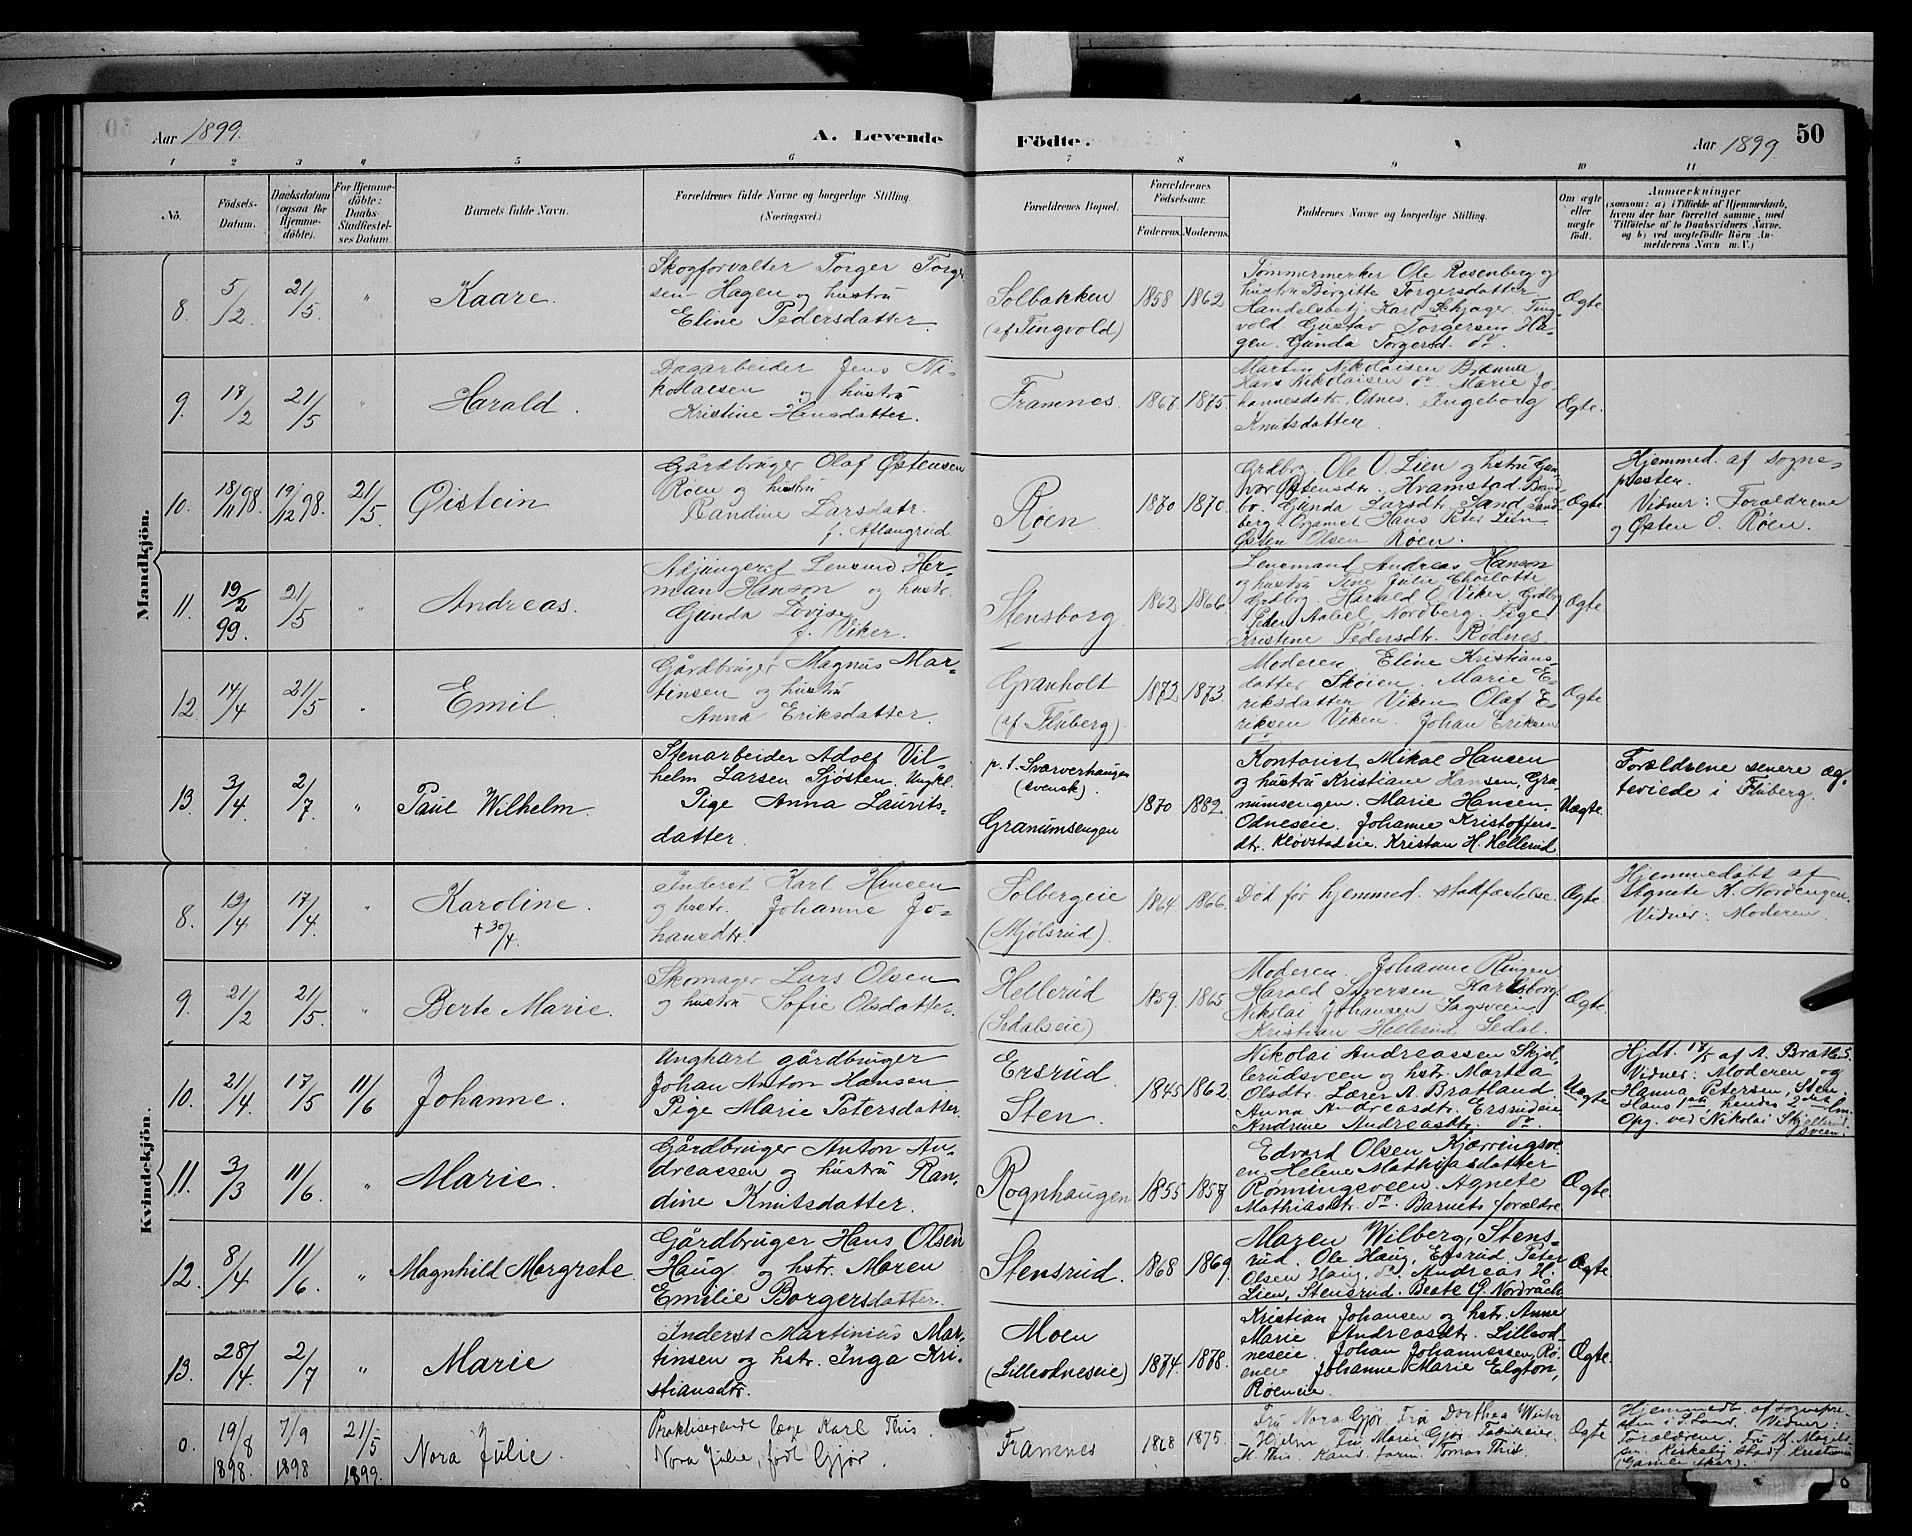 Aar 1899.
A. Levende
Fødte.
Aar 1899
50
1 2 3 4 5 6 7 8 9 10 11
No.
Fødsels-
Datum.
Daabsdatum
(ogsaa for
Hjemme-
døbte).
For Hjemme-
døbte:
Daabs-
Stadfæstel-
ses Datum.
Barnets fulde Navn.
Forældrenes fulde Navne og borgerlige Stilling.
(Næringsvei.)
Forældrenes Bopæl.
Forældrenes
Fødselsaar.
Faderens. Moderens.
Faddernes Navne og borgerlige Stilling.
Om ægte
eller
uægte
født.
Anmærkninger
(saasom: a) i Tilfælde af Hjemmedaab,
hvem der har forrettet samme, med
Tilføielse af to Daabsvidners Navne,
og b) ved uægtefødte Børn An-
melderens Navn m. V.)
Mandkjøn.
8.
5/2
21/5
"
Kaare.
Skogforvalter Torger Torger-
sen Hagen og hustru
Eline Pedersdatter.
Solbakken
(af Tingvold)
1858
1862
Tømmermerker Ole Rosenberg og
hustru Birgitte Torgersdatter
Handelsbetj. Karl Schjager Ting-
vold Gustav Torgersen Ha-
gen. Gunda Torgersd. do.
Ægte
9.
17/2
21/5
"
Harald.
Dagarbeider Jens Ni-
kolaisen og hustru
Kristine Hansdatter.
Framnes
1867
1875
Martin Nikolaisen Brænna
Hans Nikolaisen do. Marie Jo-
hannesdatr. Odnes. Ingeborg
Knutsdatter.
Ægte.
10.
18/11 98.
19/12 98.
21/5
Øistein
Gårdbruger Olaf Østensen
Røen og hustru
Randine Larsdatr.
f. Aflangrud
Røen
1870
1870
Grdbrg. Ole O. Lien og hstru Gun-
vor Østensdtr. Hvamstad.
Gunda Larsdtr. Sand
Hans Peter Lien
Østen Olsen Røen.
Ægte
Hjemmed. af Sogne-
presten.
Vidner: Forældrene
og Østen O. Røen.
11.
19/2
99.
21/5
"
Andreas.
Adjungeret Lensmd Her-
man Hanson og hustr.
Gunda Lovise
f. Viker.
Stensborg
1862
1866
Lensmand Andreas Hanson
og hustru Tine Julie Charlotte
Grdbrg. Harald O. Viker Grdbrg
Peder Nordberg. Pige
Kristine Pedersdtr. Rødnes
Ægte
12.
14/4
21/5
"
Emil
Gårdbruger Magnus Mar-
tinsen og hustru
Anna Eriksdatter.
Granholt
(af Fluberg)
1872
1873
Moderen Eline Kristians-
datter Skøien. Marie E-
riksdatter Viken Olaf E-
riksen Viken. Johan Eriksen
do
Ægte
13.
3/4
2/7
"
Paul Wilhelm.
Stenarbeider Adolf Vil-
helm Larsen Sjøsten, Ungkl.
Pige Anna Laurits-
datter.
p. t. Svarverhaugen
(svensk)
Granumsengen
1870
1882
Kontorist Mikal Hansen
og hustru Kristiane Hansen, Gra-
numsengen. Marie Hansen.
Odneseie. Johanne Kristoffers-
dtr. Kløvstadeie. Kristian H. Hellerud
Uægte.
Forældrene senere æg-
teviede i Fluberg.
Kvindekjøn.
8.
13/4
17/4
"
Karoline.
† 30/4.
Inderst Karl Hansen
og hustr. Johanne Jo-
hansdtr.
Solbergeie
(Mjølsrud).
1864
1866
Død før hjemmed. stadfæstelse.
Ægte
Hjemmedøbt af
Agnete K. Nordengen.
Vidner: Moderen.
9.
21/2
21/5
"
Berte Marie.
Skomager Lars Olsen
og hustru Sofie Olsdatter.
Hellerud
(Sedalseie)
1859
1865
Moderen. Johanne Ringen
Harald Iversen Karlsborg
Nikolai Johansen Sagsveen
Kristian Hellerud Sedal.
Ægte
10.
21/4
17/5
11/6
Johanne.
Ungkarl gårdbruger
Johan Anton Hansen
Pige Marie Petersdatter.
Ersrud
Sten
1845
1862
Nikolai Andreassen Skjel-
lerudsveen og hstr. Martea
Olsdtr. Lærer A. Bratland
Anna Andreasdtr. Ersrudeie
Andrine Andreasdtr. do
Uægte
Hjdt. 17/5 af A. Bratland.
Vidner: Moderen og
Hanna Petersen, Sten.
Hans 1ste hendes 2det lm.
Opg. ved Nikolai Skjellerud-
sveen.
11.
3/3
11/6
"
Marie.
Gårdbruger Anton An-
dreassen og hustru Ran-
dine Knutsdatter.
Rognhaugen
1855
1857
Edvard Olsen Kjærringsve-
en. Helene Mathiasdatter
Rønningsveen. Agnete
Mathiasdtr. do. Barnets forældre
Ægte
12.
8/4
11/6
"
Magnhild Margrete.
Gårdbruger Hans Olsen
Haug og hstr. Maren
Emilie Borgersdatter.
Stensrud.
1868
1869
Maren Wilberg, Stens-
rud. Ole Haug, Ersrud. Peter
Olsen Haug, do. Andreas H.
Lien, Stensrud. Beate G. Nordråch
Ægte
13.
28/4
2/7
"
Marie
Inderst Martinius Mar-
tinsen og hstr. Inga Kri-
stiansdtr.
Moen
(Lilleodneseie)
1874
1878
Kristian Johansen og hstr. Anne
Marie Andreasdtr. Lilleod-
neseie. Johan Johannessen, Rø-
eneie Johanne Marie Elgton,
Røeneie.
Ægte
0.
19/8
1898.
7/9
1898
21/5
1899.
Nora Julie
Praktiserende læge Karl This.
Nora Julie, født Gjør.
Framnes
1868
1875
Fru Nora Gjør. Fru Dorthea Winter
Hjelm Fru Marie Gjør Fabrikeier
M. This. Kand. farm. Tomas This.
Ægte
Hjemmedt af sognepre-
sten i S. Land. Vidner:
Forældrene. Fru M.
Kirkelig stadf. Kristiania
(Gamle Aker).